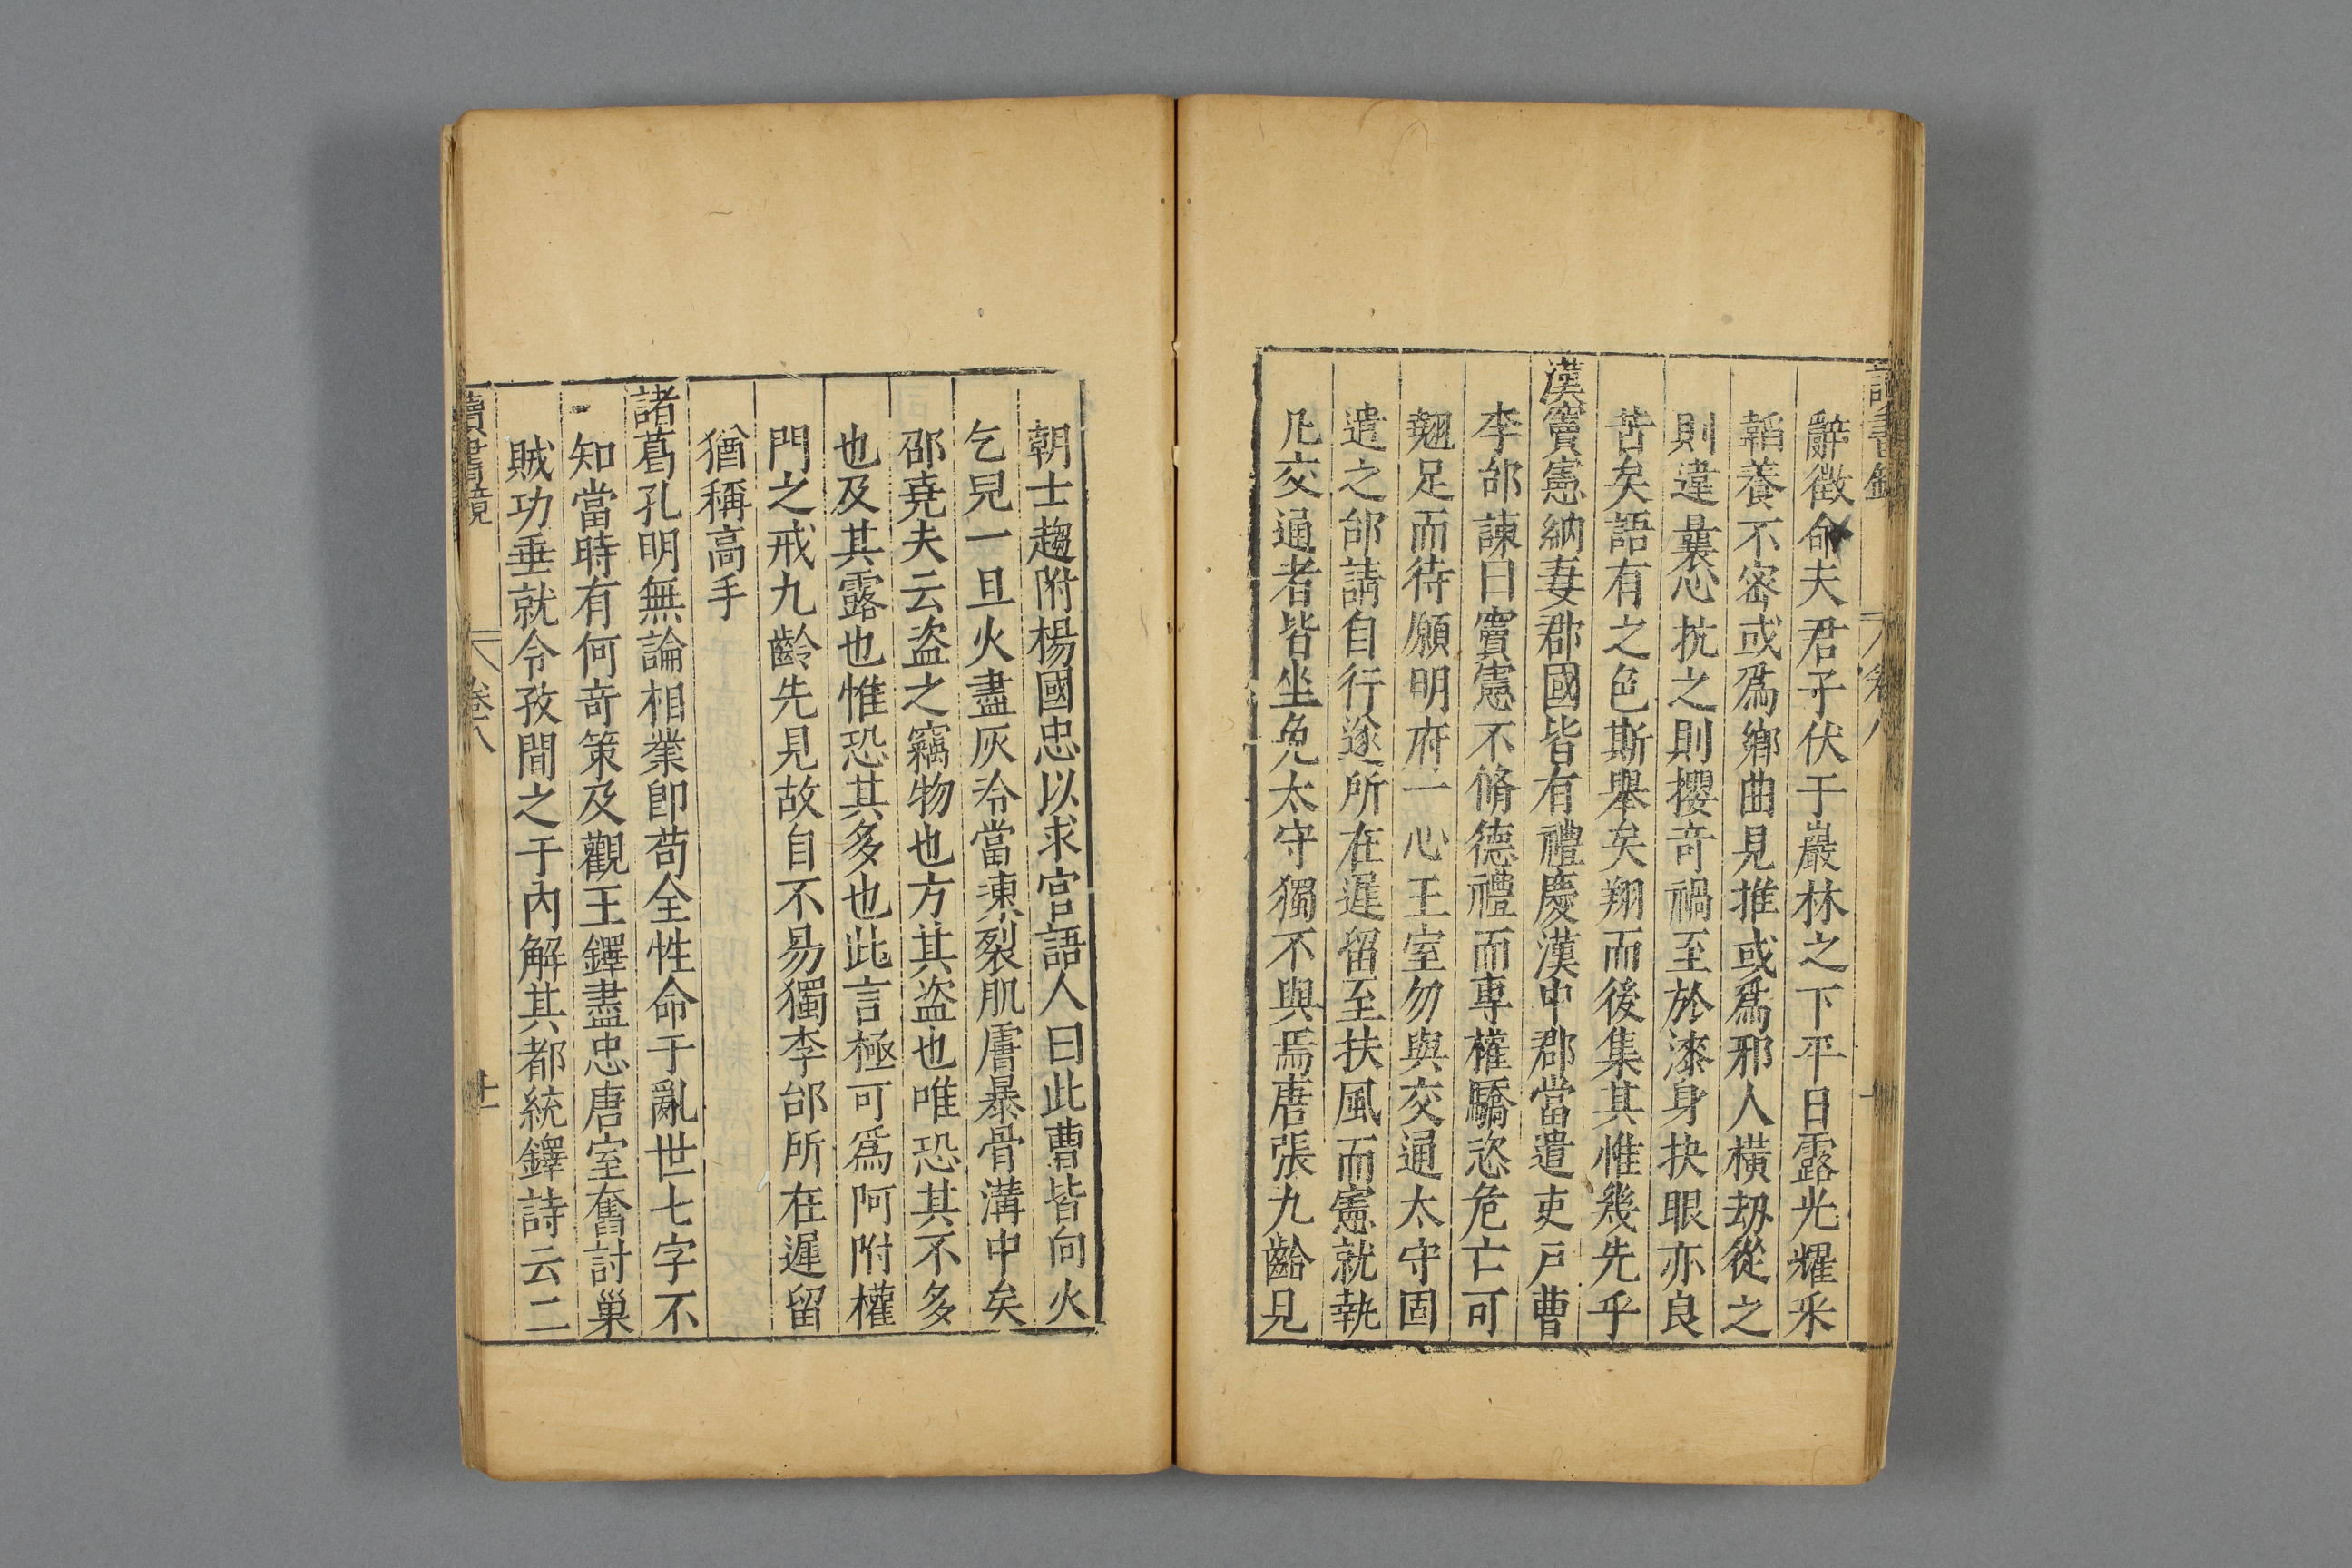 辭徵命夫君子伏于巖林之下平日露光耀采
韜養不密或爲鄉曲見推或爲邪人橫刼從之
則違曩心抗之則攖竒禍至於漆身抉眼亦良
苦矣語有之色斯舉矣翔而後集其惟幾先乎
漢竇憲納妻郡國皆有禮慶漢中郡當遣吏戸曹
李郃諫曰竇憲不脩德禮而專權驕恣危亡可
翹足而待願明府一心王室勿與交通太守固
遣之郃請自行遂所在遲留至扶風而憲就執
凡交通者皆坐免太守獨不與焉唐張九齡見
朝士趨附楊國忠以求官語人曰此曹皆向火
乞兒一旦火盡灰冷當凍裂肌膚暴骨溝中矣
邵堯夫云盜之竊物也方其盜也唯恐其不多
也及其露也惟恐其多也此言極可爲阿附權
門之戒九齡先見故自不易獨李郃所在遲留
猶稱高手
諸葛孔明無論相業卽苟全性命于亂世七字不
知當時有何竒策及觀王鐸盡忠唐室奮討巢
賊功垂就令孜間之于內解其都統鐸詩云二
讀書鏡 卷八